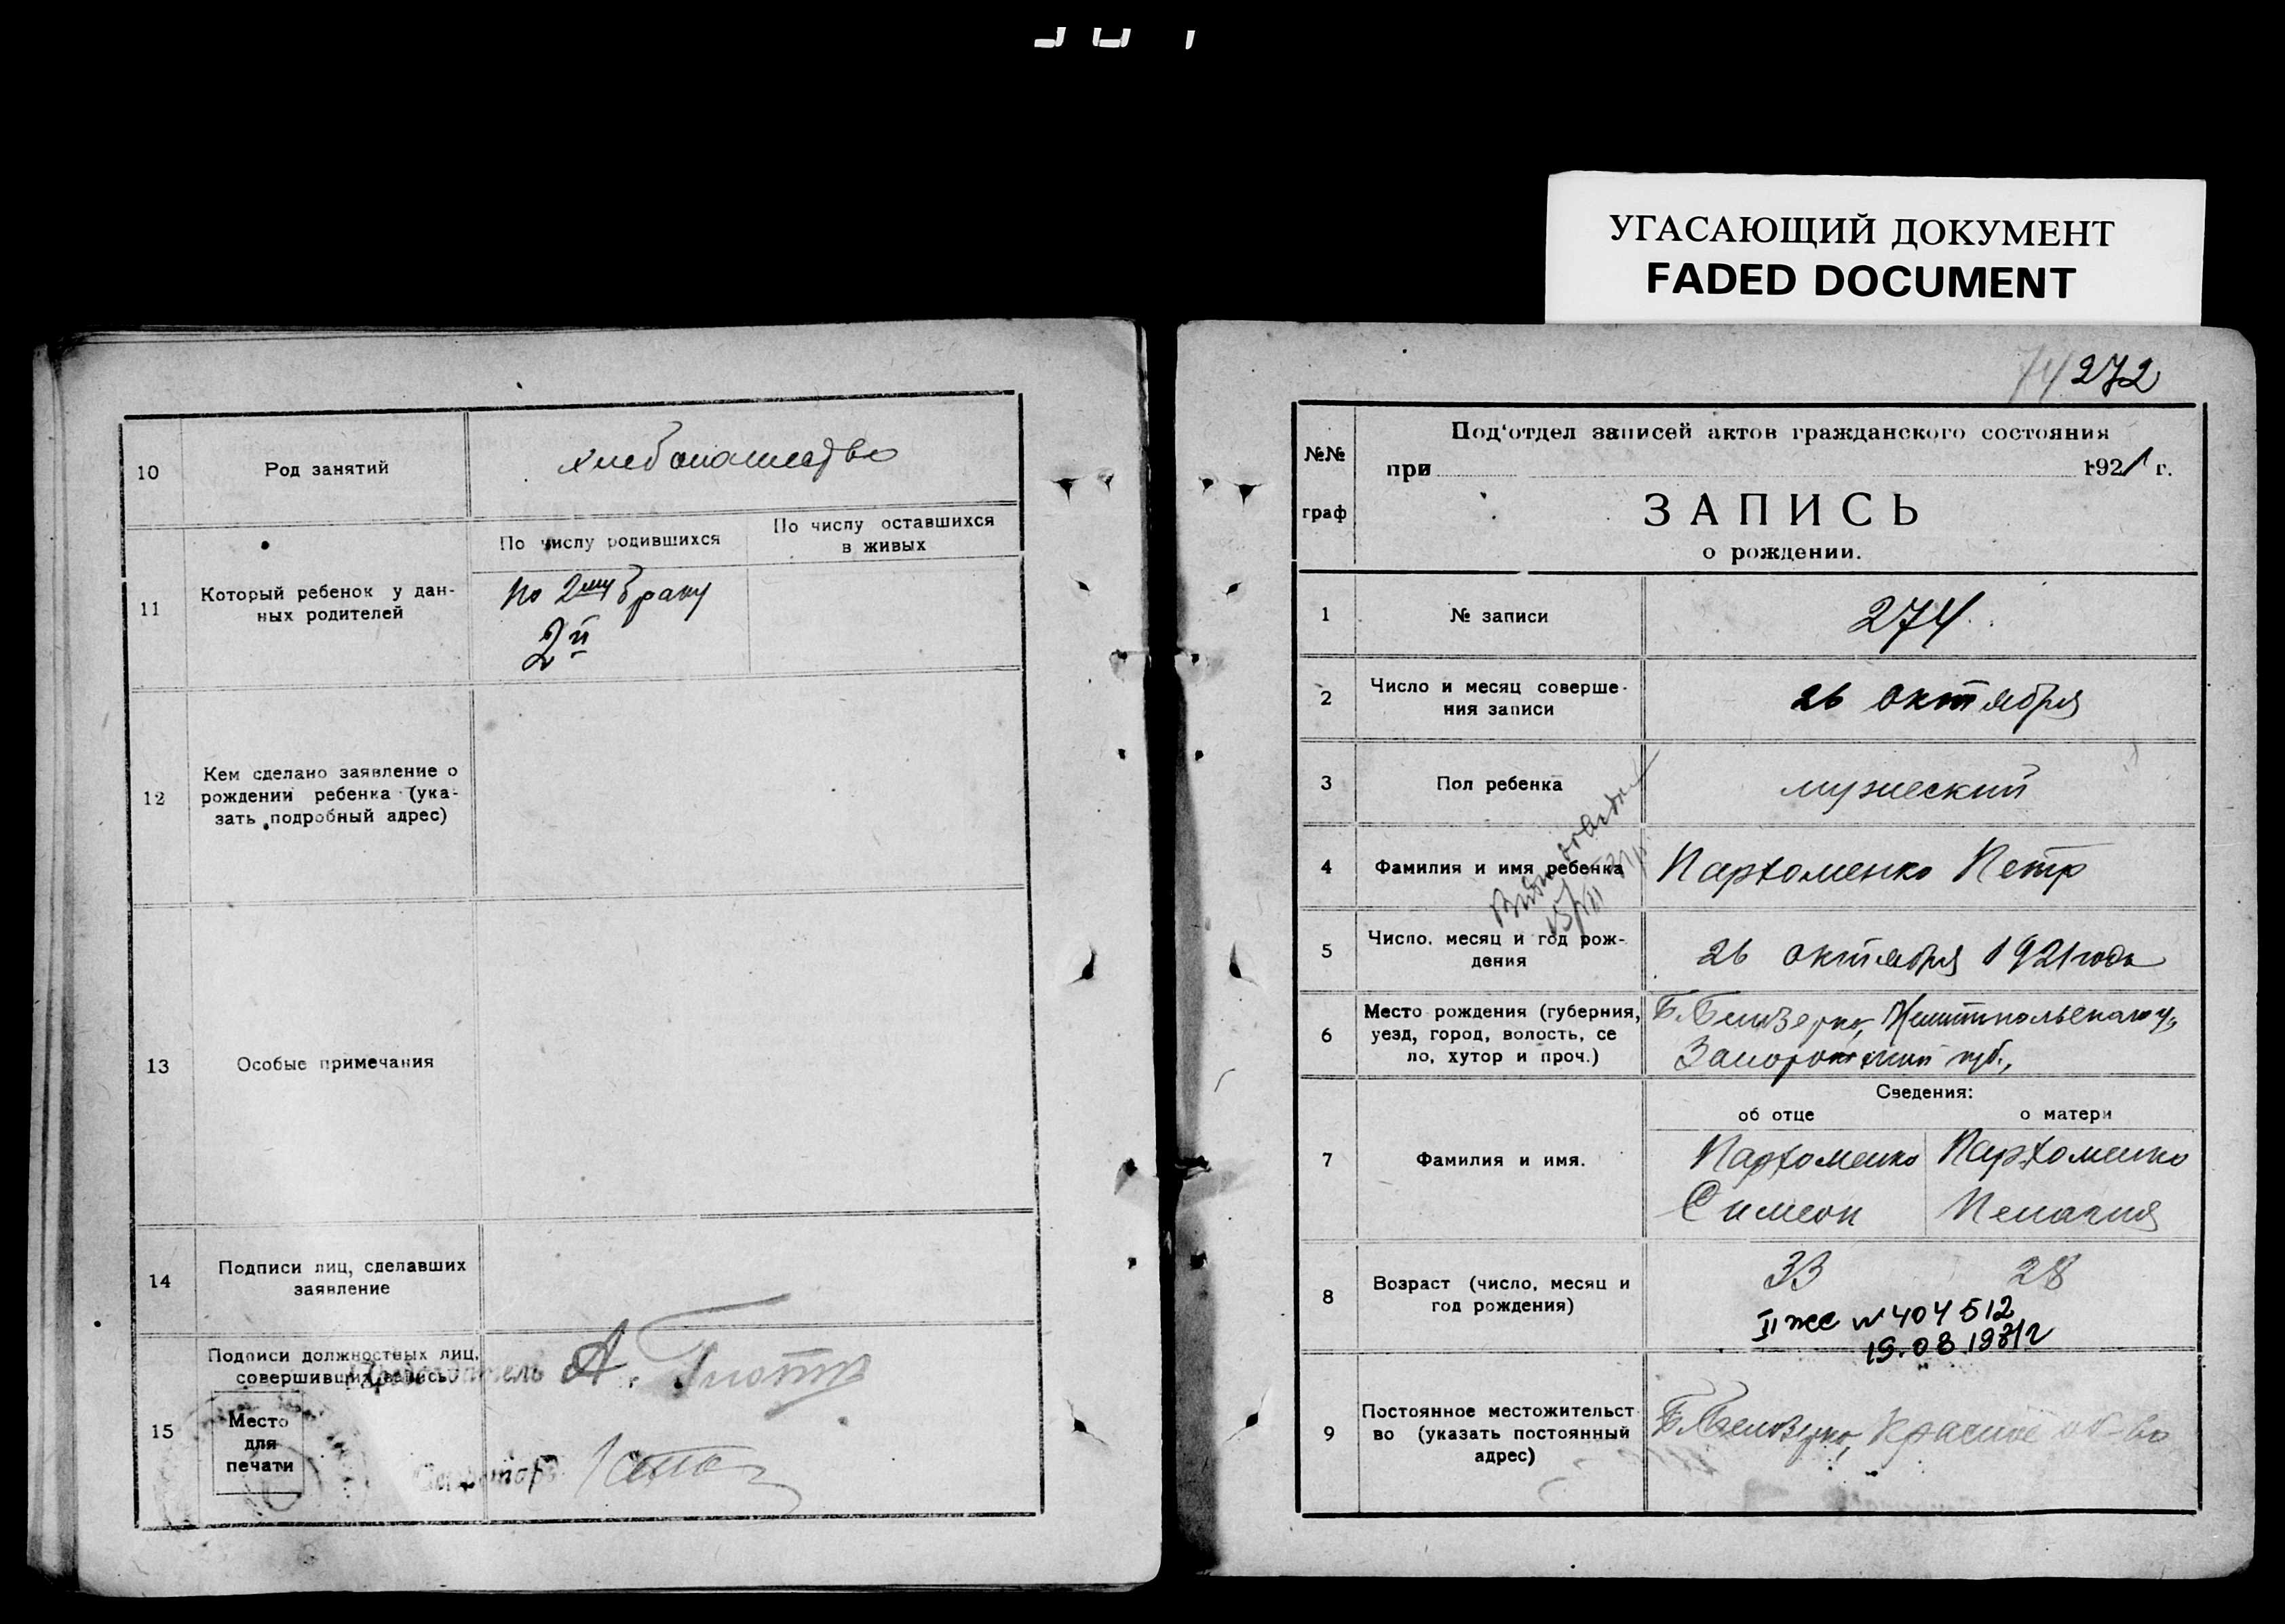 УГАСАЮЩИЙ ДОКУМЕНТ
FADED DOCUMENT
10
Род занятий
хлебопашество
11
Который ребенок у дан-
ных родителей
По числу родившихся
По числу оставшихся
в живых
по 2му браку
2й
12
Кем сделано заявление о
рождении ребенка (ука-
зать подробный адрес)
13
Особые примечания
14
Подписи лиц, сделавших
заявление
15
Подписи должностных лиц,
совершивших запись
Председатель А.
Место
для
печати
Секретарь
74 272
№№
граф
Под'отдел записей актов гражданского состояния
при 1921 г.
ЗАПИСЬ
о рождении.
1
№ записи
274
2
Число и месяц соверше-
ния записи
26 октября
3
Пол ребенка
мужеский
4
Фамилия и имя ребенка
Пархоменко Петр
5
Число, месяц и год рож-
дения
26 октября 1921 года
6
Место рождения (губерния,
уезд, город, волость, се
ло, хутор и проч.)
Б. Белозерка, Мелитпольского у,
Запорожской губ.,
Сведения:
об отце
о матери
7
Фамилия и имя.
Пархоменко
Симеон
Пархоменко
Пелагия
8
Возраст (число, месяц и
год рождения)
33
28
II жс № 404512
19.08.1971г
9
Постоянное местожительст
во (указать постоянный
адрес)
Б. Белозерка, Красное об-во